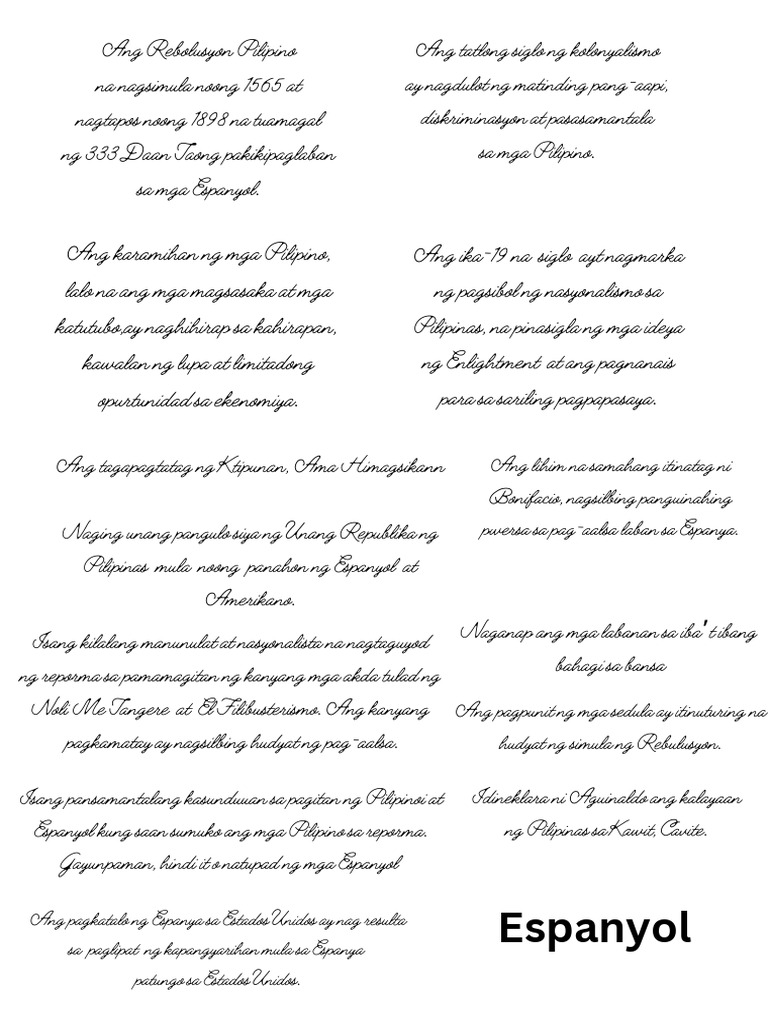 Ang Rebolusyon Pilipino
na nagsimula noong 1565 at
nagtapos noong 1898 na tuamagal
ng 333 Daan Taong pakikipaglaban
sa mga Espanyol.
Ang tatlong siglo ng kolonyalismo
ay nagdulot ng matinding pang-aapi,
diskriminasyon at pasasamantala
sa mga Pilipino.
Ang karamihan ng mga Pilipino,
lalo na ang mga magsasaka at mga
katutubo,ay naghihirap sa kahirapan,
kawalan ng lupa at limitadong
opurtunidad sa ekenomiya.
Ang ika-19 na siglo ayt nagmarka
ng pagsibol ng nasyonalismo sa
Pilipinas, na pinasigla ng mga ideya
ng Enlightment at ang pagnanais
para sa sariling pagpapasaya.
Ang tagapagtatag ng Ktipunan, Ama Himagsikann
Ang lihim na samahang itinatag ni
Bonifacio, nagsilbing panguinahing
pwersa sa pag-aalsa laban sa Espanya.
Naging unang pangulo siya ng Unang Republika ng
Pilipinas mula noong panahon ng Espanyol at
Amerikano.
Isang kilalang manunulat at nasyonalista na nagtaguyod
ng reporma sa pamamagitan ng kanyang mga akda tulad ng
Noli Me Tangere at El Filibusterismo. Ang kanyang
pagkamatay ay nagsilbing hudyat ng pag-aalsa.
Naganap ang mga labanan sa iba't ibang
bahagi sa bansa
Ang pagpunit ng mga sedula ay itinuturing na
hudyat ng simula ng Rebulusyon.
Isang pansamantalang kasunduuan sa pagitan ng Pilipinoi at
Espanyol kung saan sumuko ang mga Pilipino sa reporma.
Gayunpaman, hindi it o natupad ng mga Espanyol
Idineklara ni Aguinaldo ang kalayaan
ng Pilipinas sa Kawit, Cavite.
Ang pagkatalo ng Espanya sa Estados Unidos ay nag resulta
sa paglipat ng kapangyarihan mula sa Espanya
patungo sa Estados Unidos.
Espanyol